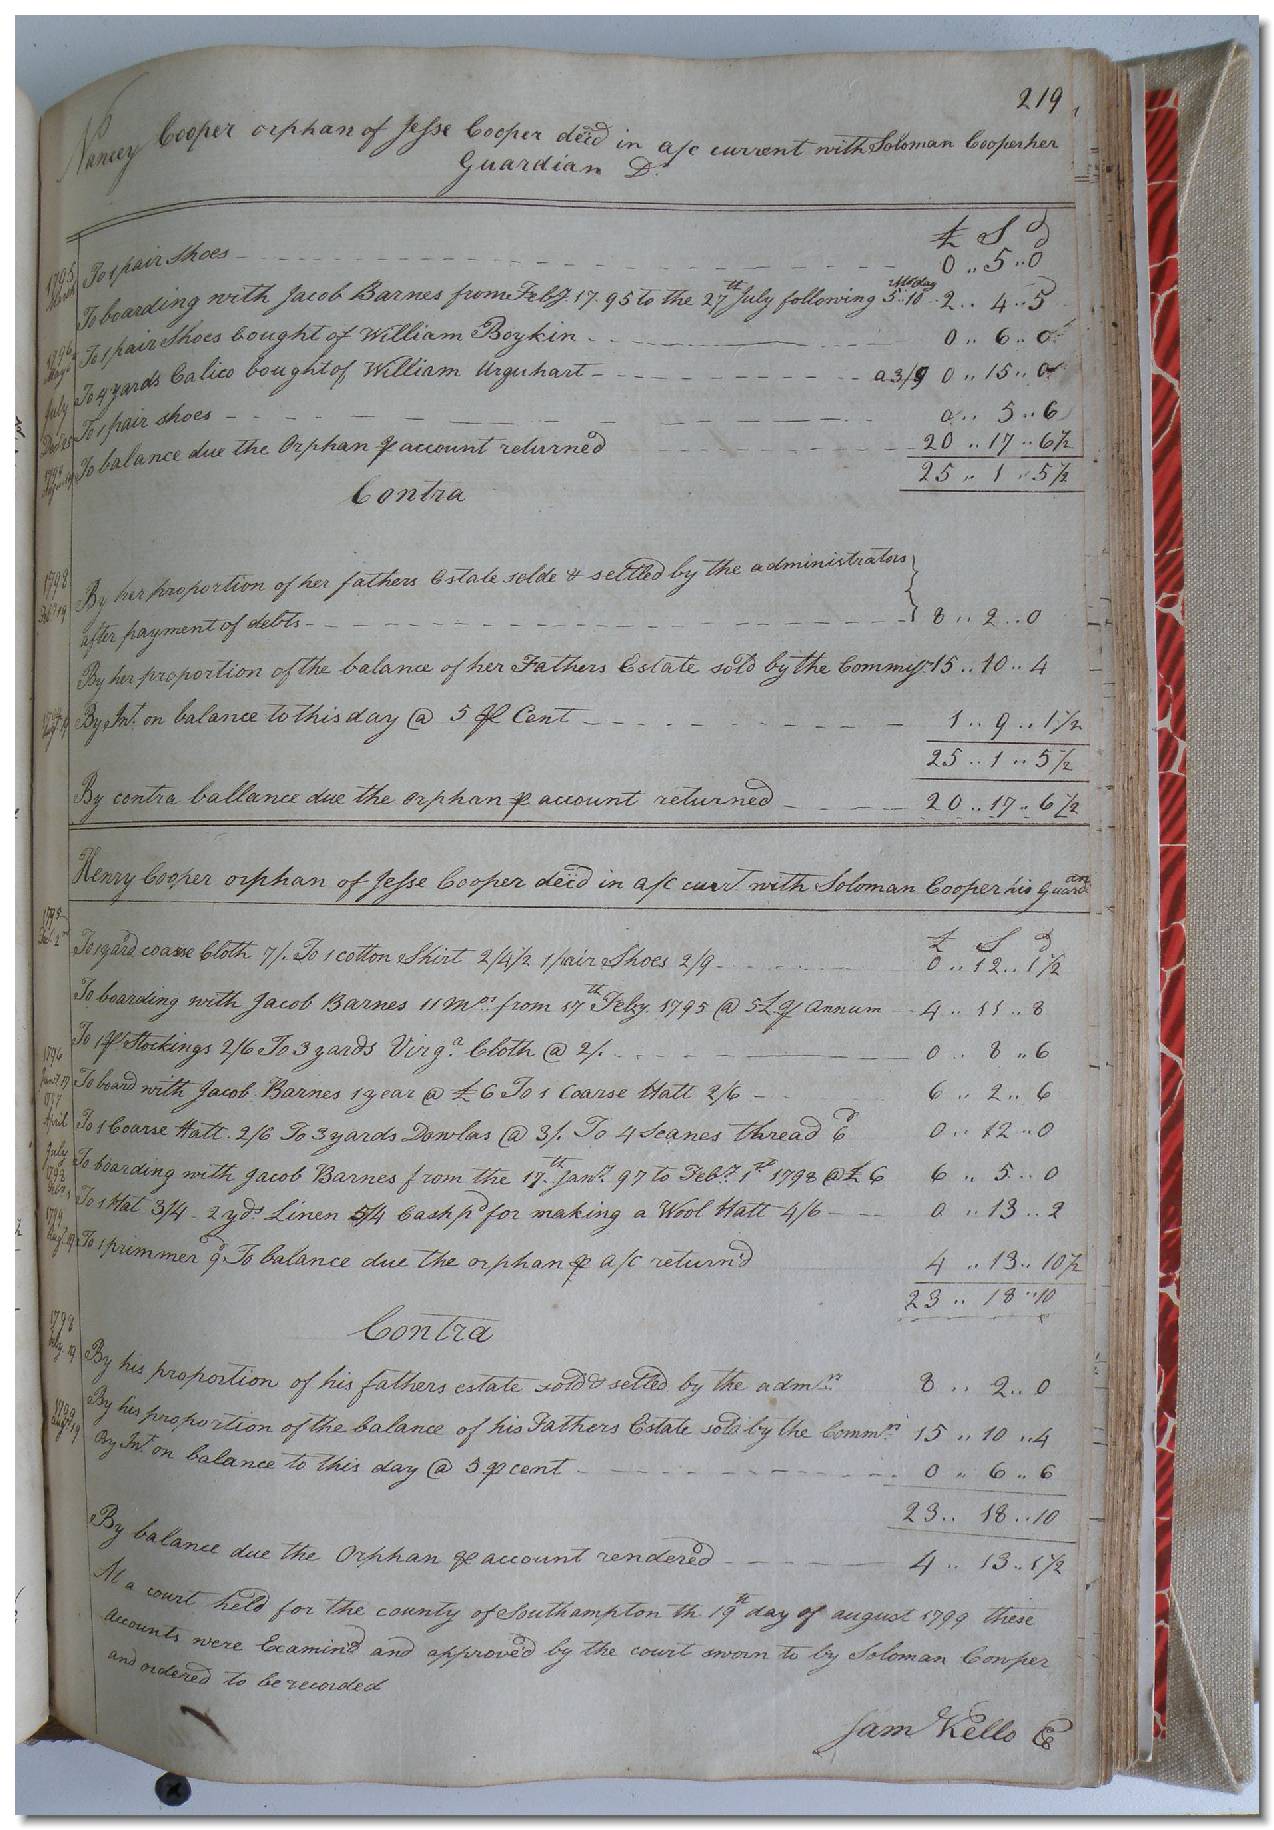 219
Nancey Cooper orphan of Jesse Cooper decd in a/c current with Soloman Cooper her
Guardian Dr
£ S d
1795 March To 1 pair shoes 0 .. 5 .. 0
To boarding with Jacob Barnes from Feby. 17. 95 to the 27th July following 5..10 2 .. 4 .. 5
1796 May To 1 pair Shoes bought of William Boykin 0 .. 6 .. 0
July To 4 yards Calico bought of William Urquhart a 3/9 0 .. 15 .. 0
To 1 pair shoes 0 .. 5 .. 6
To balance due the Orphan ⅌ account returned 20 .. 17 .. 6½
25 .. 1 .. 5½
Contra
1798
By her proportion of her fathers Estate solde & settled by the administrators
after payment of debts 8 .. 2 .. 0
By her proportion of the balance of her Fathers Estate sold by the Commrs 15 .. 10 .. 4
By Int. on balance to this day @ 5 ⅌ Cent 1 .. 9 .. 1½
25 .. 1 .. 5½
By contra ballance due the orphan ⅌ account returned 20 .. 17 .. 6½
Henry Cooper orphan of Jesse Cooper decd in a/c curt with Soloman Cooper his Guardan
£ S d
To 1 yard coarse Cloth 7/. To 1 cotton Shirt 2/4½ 1 pair Shoes 2/9 0 .. 12 .. 1½
To boarding with Jacob Barnes 11 Mos. from 17th Feby. 1795 @ 5£ ⅌ annum 4 .. 11 .. 8
To 1 pr Stockings 2/6 To 3 yards Virga. Cloth @ 2/. 0 .. 8 .. 6
1796 To board with Jacob Barnes 1 year @ £6 To 1 Coarse Hatt 2/6 6 .. 2 .. 6
April To 1 Coarse Hatt. 2/6 To 3 yards Dowlas @ 3/. To 4 Scanes thread 6d 0 .. 12 .. 0
July To boarding with Jacob Barnes from the 17th Jany. 97 to Feby. 1st 1798 @ £6 6 .. 5 .. 0
To 1 Hat 3/4 - 2 yds. Linen 5/4 Cash pd for making a Wool Hatt 4/6 0 .. 13 .. 2
1799 Augt. 19 To 1 primmer 9d To balance due the orphan ⅌ a/c return'd 4 .. 13 .. 10½
23 .. 18 .. 10
Contra
1798
By his proportion of his fathers estate sold & settled by the admrs. 8 .. 2 .. 0
By his proportion of the balance of his Fathers Estate sold by the Commrs. 15 .. 10 .. 4
1799 Augt. 19 By Int. on balance to this day @ 5 ⅌ cent 0 .. 6 .. 6
23 .. 18 .. 10
By balance due the Orphan ⅌ account rendered 4 .. 13 .. 1½
At a court held for the county of Southampton th 19th day of august 1799 these
accounts were Examin'd and approved by the court sworn to by Soloman Cooper
and ordered to be recorded
Sam Kello CC